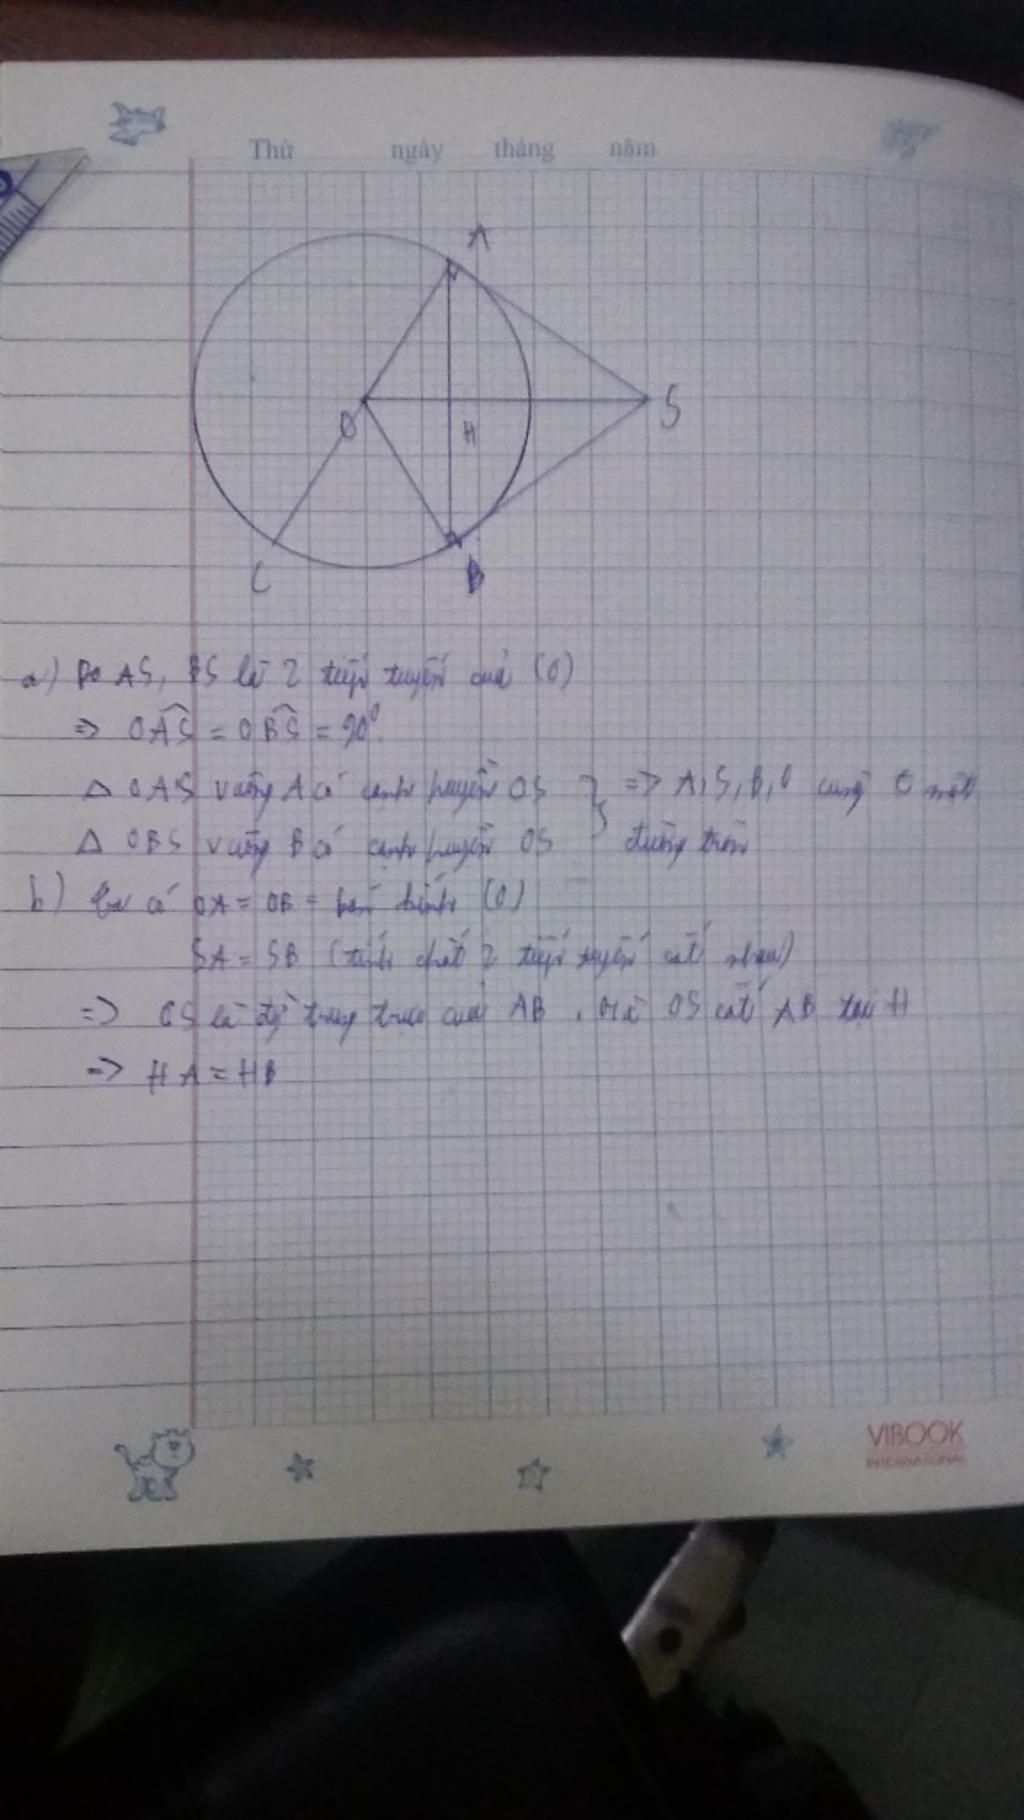 Thứ ngày tháng năm
A
O
H
S
C
B
a) Do AS, BS là 2 tiếp tuyến của (O)
=> OAS = OBS = 90°
Δ OAS vuông A có cạnh huyền OS } => A, S, B, O cùng ∈ một
Δ OBS vuông B có cạnh huyền OS đường tròn
b) Ta có OA = OB = bán kính (O)
SA = SB (tính chất 2 tiếp tuyến cắt nhau)
=> OS là đg trung trực của AB. Mà OS cắt AB tại H
=> HA = HB
VIBOOK
INTERNATIONAL